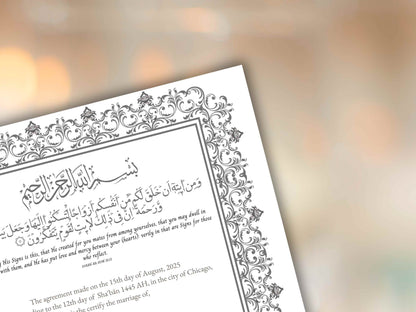 بسم الله الرحمن الرحيم
وَمِنْ آيَاتِهِ أَنْ خَلَقَ لَكُمْ مِّنْ أَنْفُسِكُمْ أَزْوَاجًا لِتَسْكُنُوا إِلَيْهَا وَجَعَلَ
وَرَحْمَةً إِنَّ فِي ذَلِكَ لَآيَاتٍ لِقَوْمٍ يَتَفَكَّرُونَ
His Signs is this, that He created for you mates from among yourselves, that you may dwell in
with them, and He has put love and mercy between your (hearts) verily in that are Signs for those
who reflect.
The agreement made on the 15th day of August, 2025
to the 12th day of Sha'bān 1445 AH, in the city of Chicago,
is the certify the marriage of,